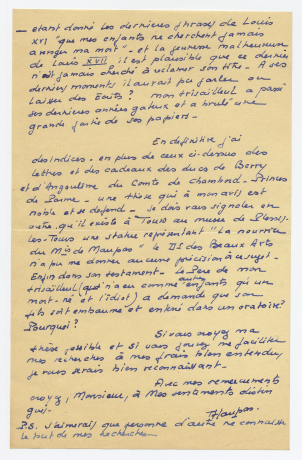 — etant donné les dernieres phrases de Louis
XVI "que mes enfants ne cherchent jamais
a venger ma mort" - et la jeunesse malheureuse
de Louis XVII il est plausible que ce dernier
n'ait jamais cherché à réclamer son titre. A ses
derniers moments il aurait pu parler ou
laisser des Ecrits? mon trisaïeul a passé
ses dernieres années gateux et a brulé une
grande partie de ses papiers -
En définitive j'ai
des indices. en plus de ceux ci-dessus des
lettres et des cadeaux des ducs de Berry
et d'Angouleme du Comte de Chambord - Princes
de Parme - une thèse qui à mon avis est
noble et se defend - je dois vous signaler en
outre qu'il existe à Tours au musee de Plessis-
les-Tours une statue représentant "La nourrice
du Mis de Maupas" le DS des Beaux Arts
n'a pu me donner aucune précision à ce sujet -
Enfin dans son testament - le Pere de mon
trisaïeul (qui n'a eu comme autres enfants qu'un
mort-né et l'idiot) a demandé que son
fils soit embaumé et enterré dans un oratoire?
Pourquoi?
Si vous croyez ma
thèse possible et si vous pouvez me faciliter
mes recherches à mes frais bien entendu,
je vous serais bien reconnaissant -
Avec mes remerciements
croyez, Monsieur, à mes sentiments distin
gués -
Maupas.
P.S. J'aimerais que personne d'autre ne connaisse
le but de mes recherches